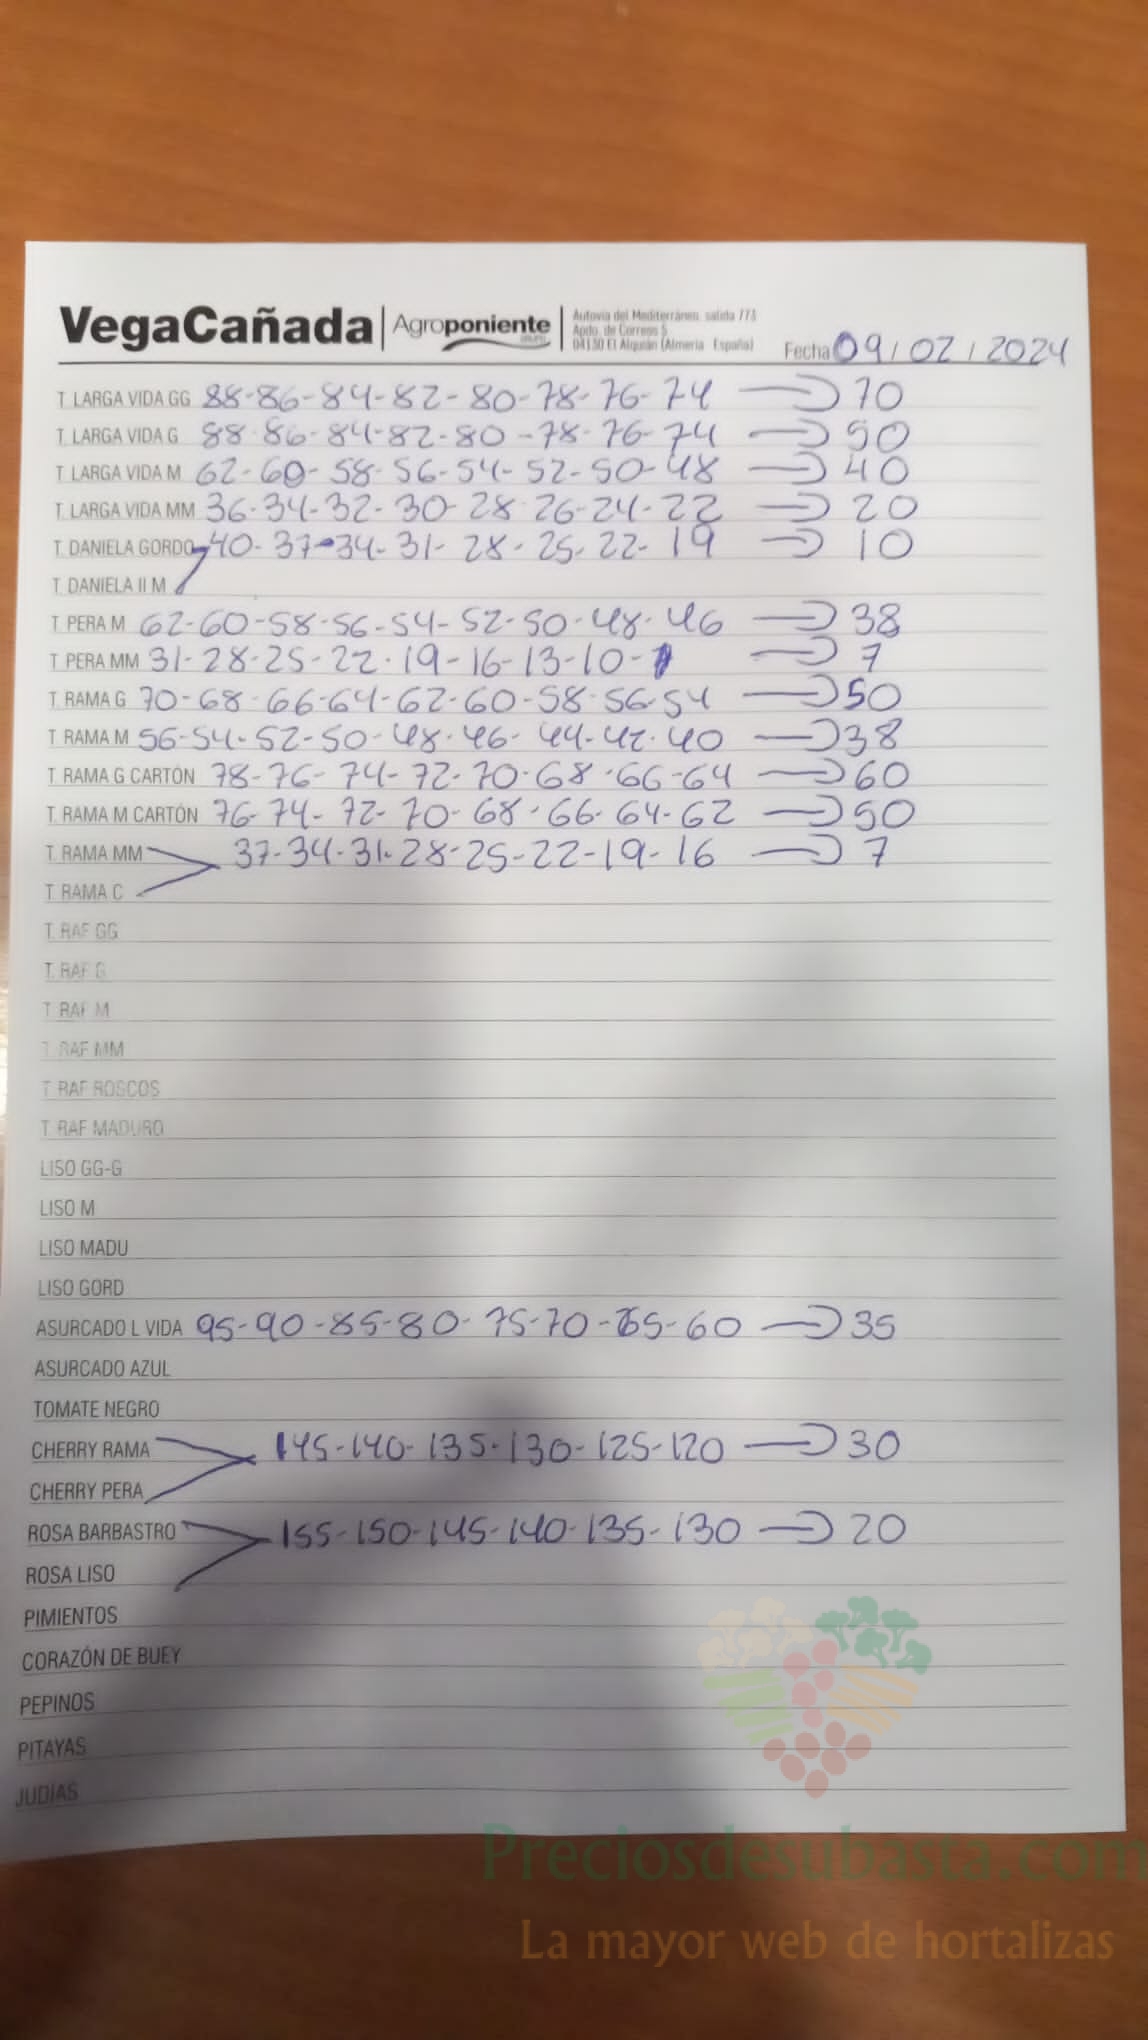 VegaCañada | Agroponiente GRUPO | Autovía del Mediterráneo, salida 773
Apdo. de Correos 5
04130 El Alquián (Almería España)
Fecha 09/02/2024
T. LARGA VIDA GG 88-86-84-82-80-78-76-74 70
T. LARGA VIDA G 88-86-84-82-80-78-76-74 50
T. LARGA VIDA M 62-60-58-56-54-52-50-48 40
T. LARGA VIDA MM 36-34-32-30-28-26-24-22 20
T. DANIELA GORDO 40-37-34-31-28-25-22-19 10
T. DANIELA II M
T. PERA M 62-60-58-56-54-52-50-48-46 38
T. PERA MM 31-28-25-22-19-16-13-10- 7
T. RAMA G 70-68-66-64-62-60-58-56-54 50
T. RAMA M 56-54-52-50-48-46-44-42-40 38
T. RAMA G CARTÓN 78-76-74-72-70-68-66-64 60
T. RAMA M CARTÓN 76-74-72-70-68-66-64-62 50
T. RAMA MM 37-34-31-28-25-22-19-16 7
T. RAMA C
T. RAF GG
T. RAF G
T. RAF M
T. RAF MM
T. RAF ROSCOS
T. RAF MADURO
LISO GG-G
LISO M
LISO MADU
LISO GORD
ASURCADO L VIDA 95-90-85-80-75-70-65-60 35
ASURCADO AZUL
TOMATE NEGRO
CHERRY RAMA 145-140-135-130-125-120 30
CHERRY PERA
ROSA BARBASTRO 155-150-145-140-135-130 20
ROSA LISO
PIMIENTOS
CORAZÓN DE BUEY
PEPINOS
PITAYAS
JUDIAS
Preciosdesubasta.com
La mayor web de hortalizas